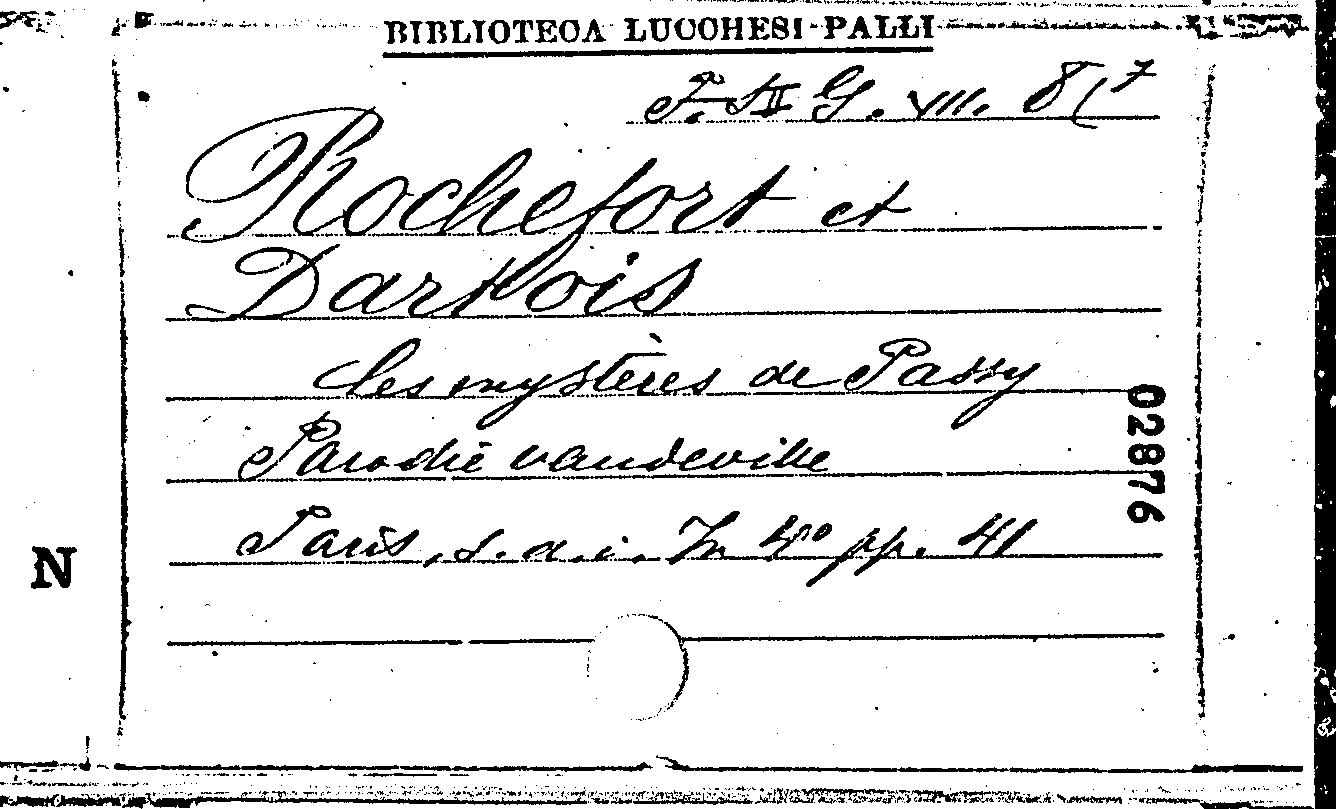 BIBLIOTECA LUCCHESI-PALLI
F. S II G. VIII. 8(7
Rochefort et
Dartois
Les mystères de Passy
Parodie vaudeville
02876
Paris, s. a. i. In 4° pp. 41
N